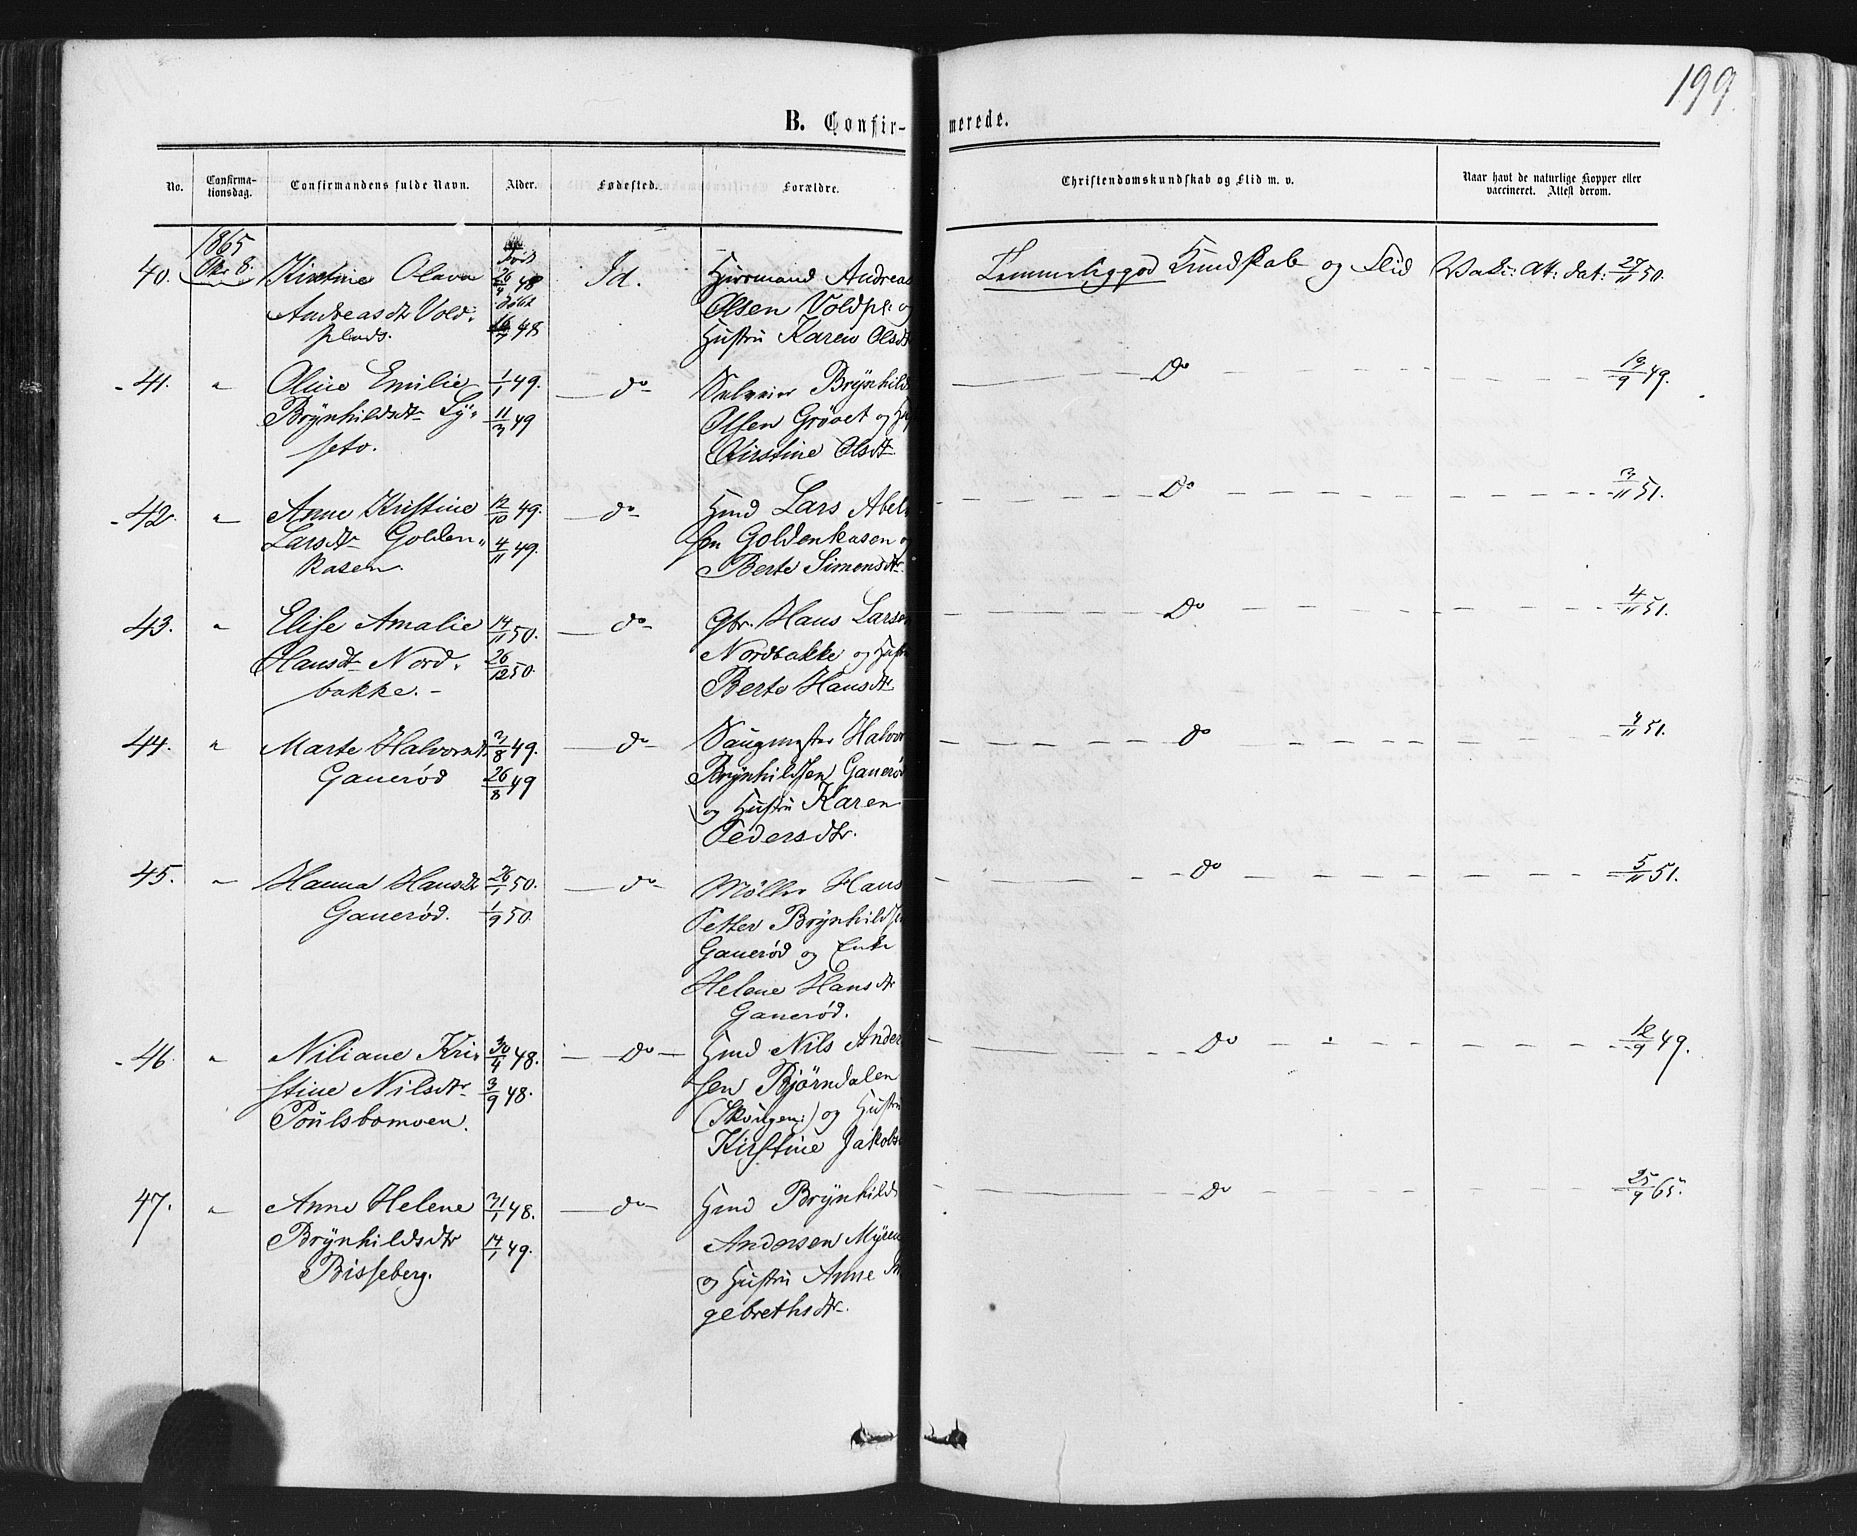 199.
B. Confir- merede.
No.
Confirma-
tionsdag.
Confirmandens fulde Navn.
Alder.
Fødested.
Forældre.
Christendomskundskab og Flid m. v.
Naar havt de naturlige Kopper eller
vaccineret. Attest derom.
1865
Okr 8.
40.
Kirstine Olava
Andreasdtr Vold-
plads.
Født
26/4 48
døbt
16/7 48
Id.
Huusmand Andreas
Olsen Voldpl: og
Hustru Karen Olsdtr
Temmeliggod Kundskab og Flid
Vak: At: dat: 27/11 50.
41.
"
Oline Emilie
Brÿnhildsdtr Lÿ-
seto.
1/1 49.
11/3 49
do
Brÿnhilds
Olsen Grövet og
Kirstine Olsdtr
Do
19/9 49.
42.
"
Anne Kristine
Larsdtr Golden-
kasen.
12/10 49.
4/11 49.
do
Hmd Lars Abel-
sen Goldenkasen og
Berte Simensdtr.
Do
3/11 51.
43.
"
Elise Amalie
Hansdtr Nord-
bakke.-
14/11 50.
26/12 50.
do
Gbr. Hans Larsen
Nordbakke og Hustru
Berte Hansdtr
Do
4/11 51.
44.
"
Marte Halvorsdt.
Gauerød
2/8 49.
26/8 49
do
Saugmester Halvor
Brÿnhildsen Gauerød
og Hustru Karen
Pedersdtr.
do
4/11 51.
45.
"
Hanna Hansdtr
Gauerød.
26/1 50.
1/9 50.
do
Møller Hans
Petter Brÿnhildsen
Gauerød og Enke
Helene Hansdtr
Gauerød.
do
5/11 51.
46.
"
Niliane Kri-
stine Nilsdtr
Poulsbomoen.
30/4 48.
3/9 48.
Do
Hmd Nils Ander
sen Bjørndalen
(Skougen:) og Hustru
Kirstine Jakobs
Do
12/9 49.
47.
"
Anne Helene
Brÿnhildsdtr
Bisseberg.
31/1 48.
14/1 49.
do
Hmd Brÿnhild
Andersen Mÿren
og Hustru Anne In
gebrethsdtr.
Do
25/9 65.